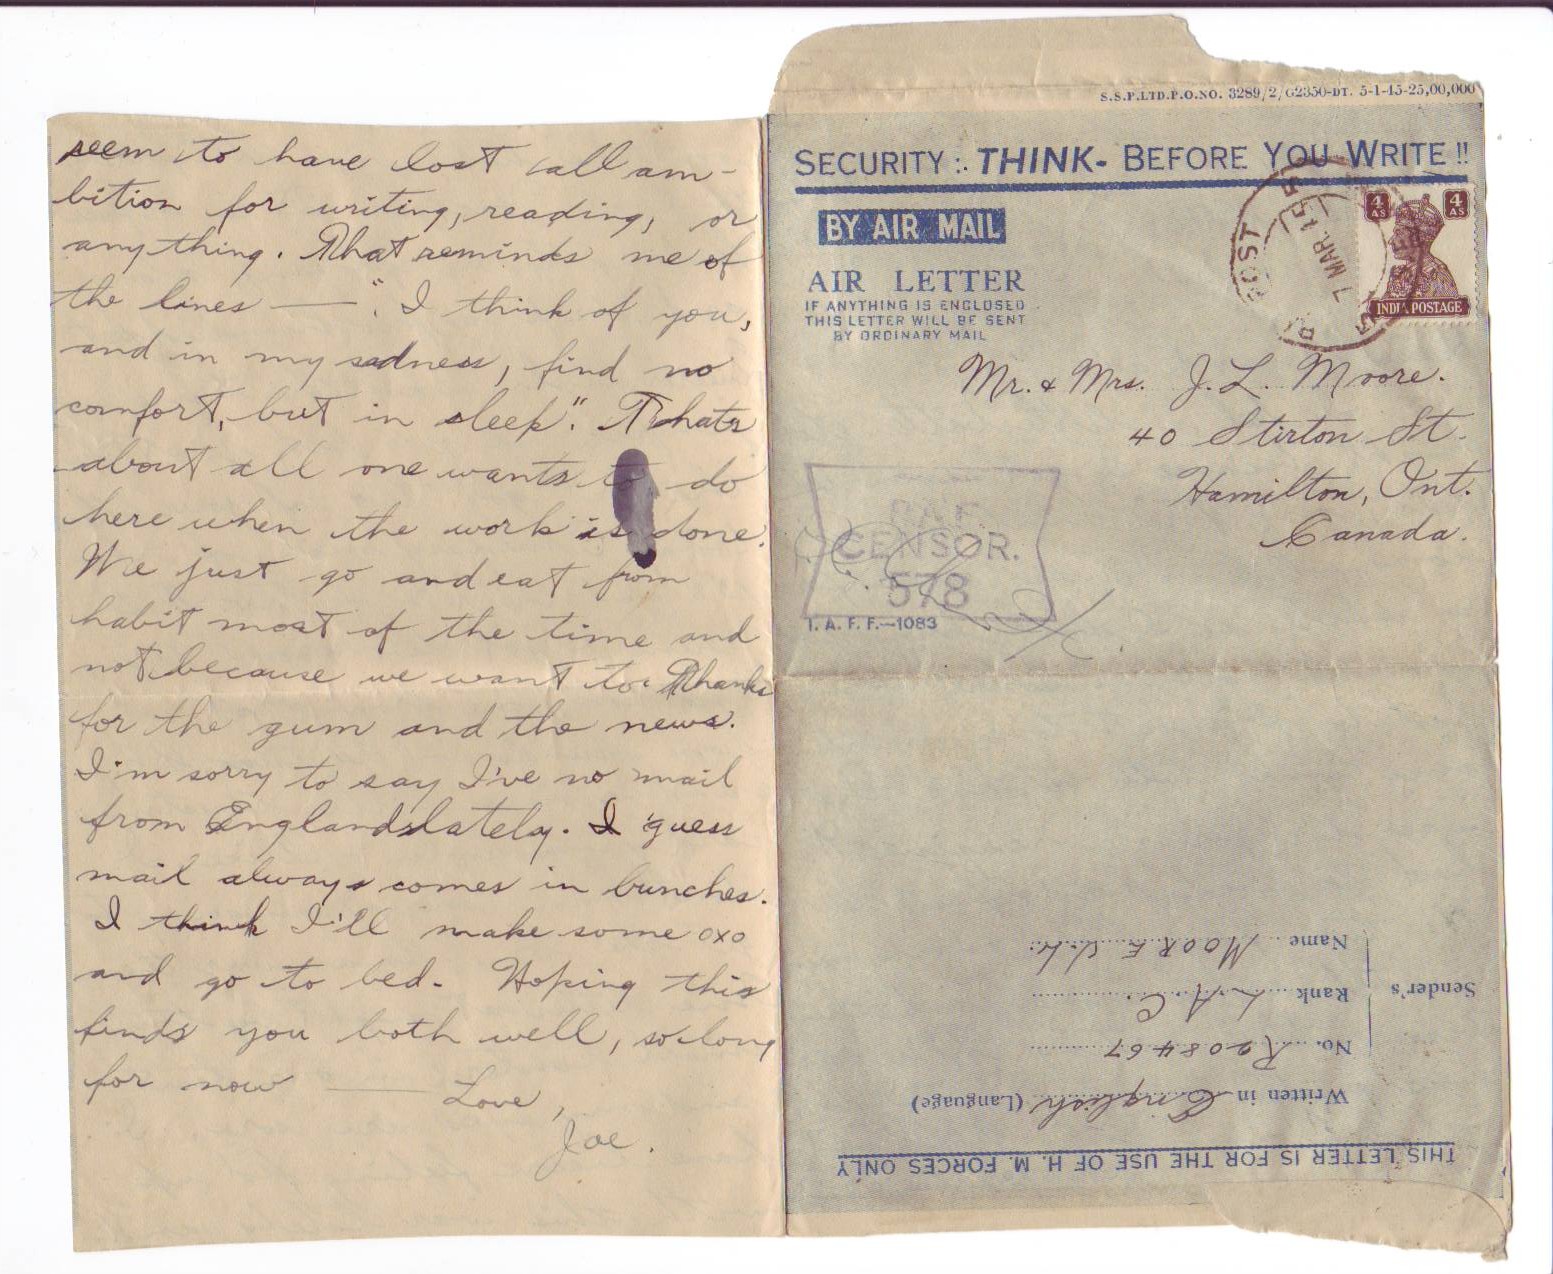 seem to have lost all am-
bition for writing, reading, or
anything. That reminds me of
the lines — "I think of you,
and in my sadness, find no
comfort, but in sleep". Thats
about all one wants to do
here when the work is done.
We just go and eat from
habit most of the time and
not because we want to. Thanks
for the gum and the news.
I'm sorry to say I've no mail
from England lately. I guess
mail always comes in bunches.
I think I'll make some oxo
and go to bed. Hoping this
finds you both well, so long
for now — Love,
Joe.
S.S.P.LTD.P.O.NO. 3289/2/G2350-DT. 5-1-45-25,00,000
SECURITY :. THINK- BEFORE YOU WRITE !!
BY AIR MAIL
AIR LETTER
IF ANYTHING IS ENCLOSED
THIS LETTER WILL BE SENT
BY ORDINARY MAIL
POST
7 MAR. 15
4 AS
4 AS
INDIA POSTAGE
Mr. & Mrs. J. L. Moore.
40 Stirton St.
Hamilton, Ont.
Canada.
CENSOR.
578
I. A. F. F.—1083
THIS LETTER IS FOR THE USE OF H. M. FORCES ONLY
Written in English (Language)
Sender's
No. R208467
Rank L.A.C.
Name MOORE